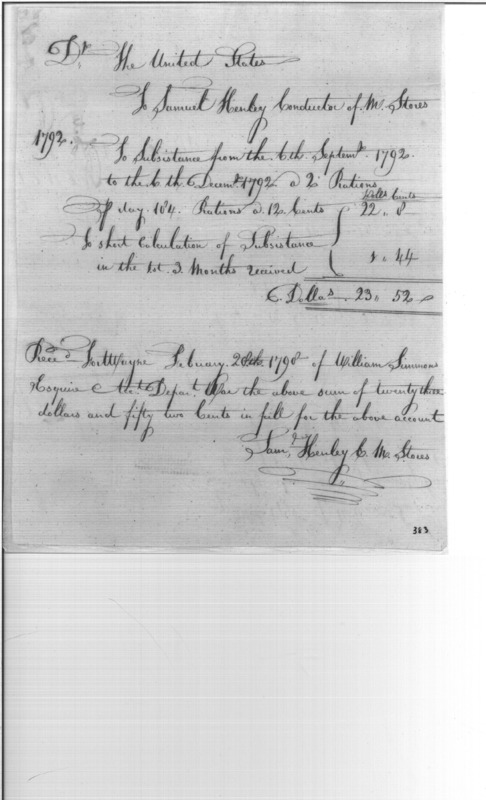 Dr. The United States
To Samuel Henley Conductor of M. Stores
1792. To Subsistance from the 6th. Septemr. 1792.
to the 6th. Decemr. 1792 a 2 Rations
Dolls Cents
P day. 184. Rations a. 12 Cents 22. 8
To short Calculation of Subsistance
in the 1st. 3 Months received 1. 44
Dollas. 23. 52
Rece'd Fortwayne Febuary. 1798 of William Simmons
Esquire Act. Depar.t War the above sum of twenty three
dollars and fifty two Cents in full for the above account
Saml. Henley C. M. Stores
383